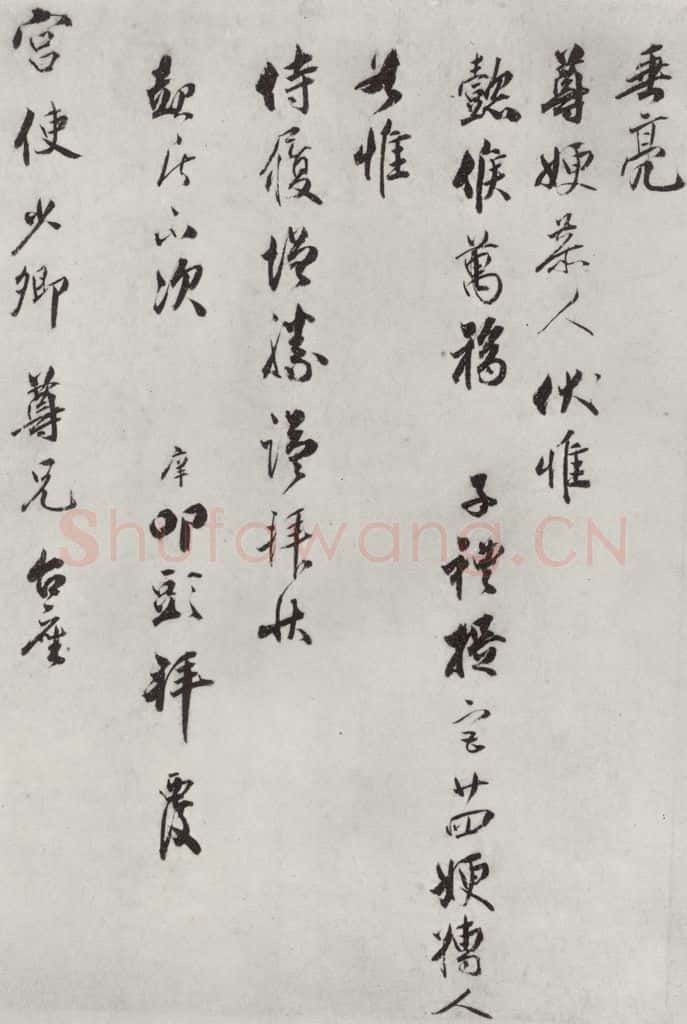 垂亮
尊嫂恭人伏惟
懿候萬福 子禮提宮廿四嫂孺人
惟
侍履增勝謹拜狀
起居不次 叩頭拜覆
宮使少卿尊兄台座
Shufawang.CN